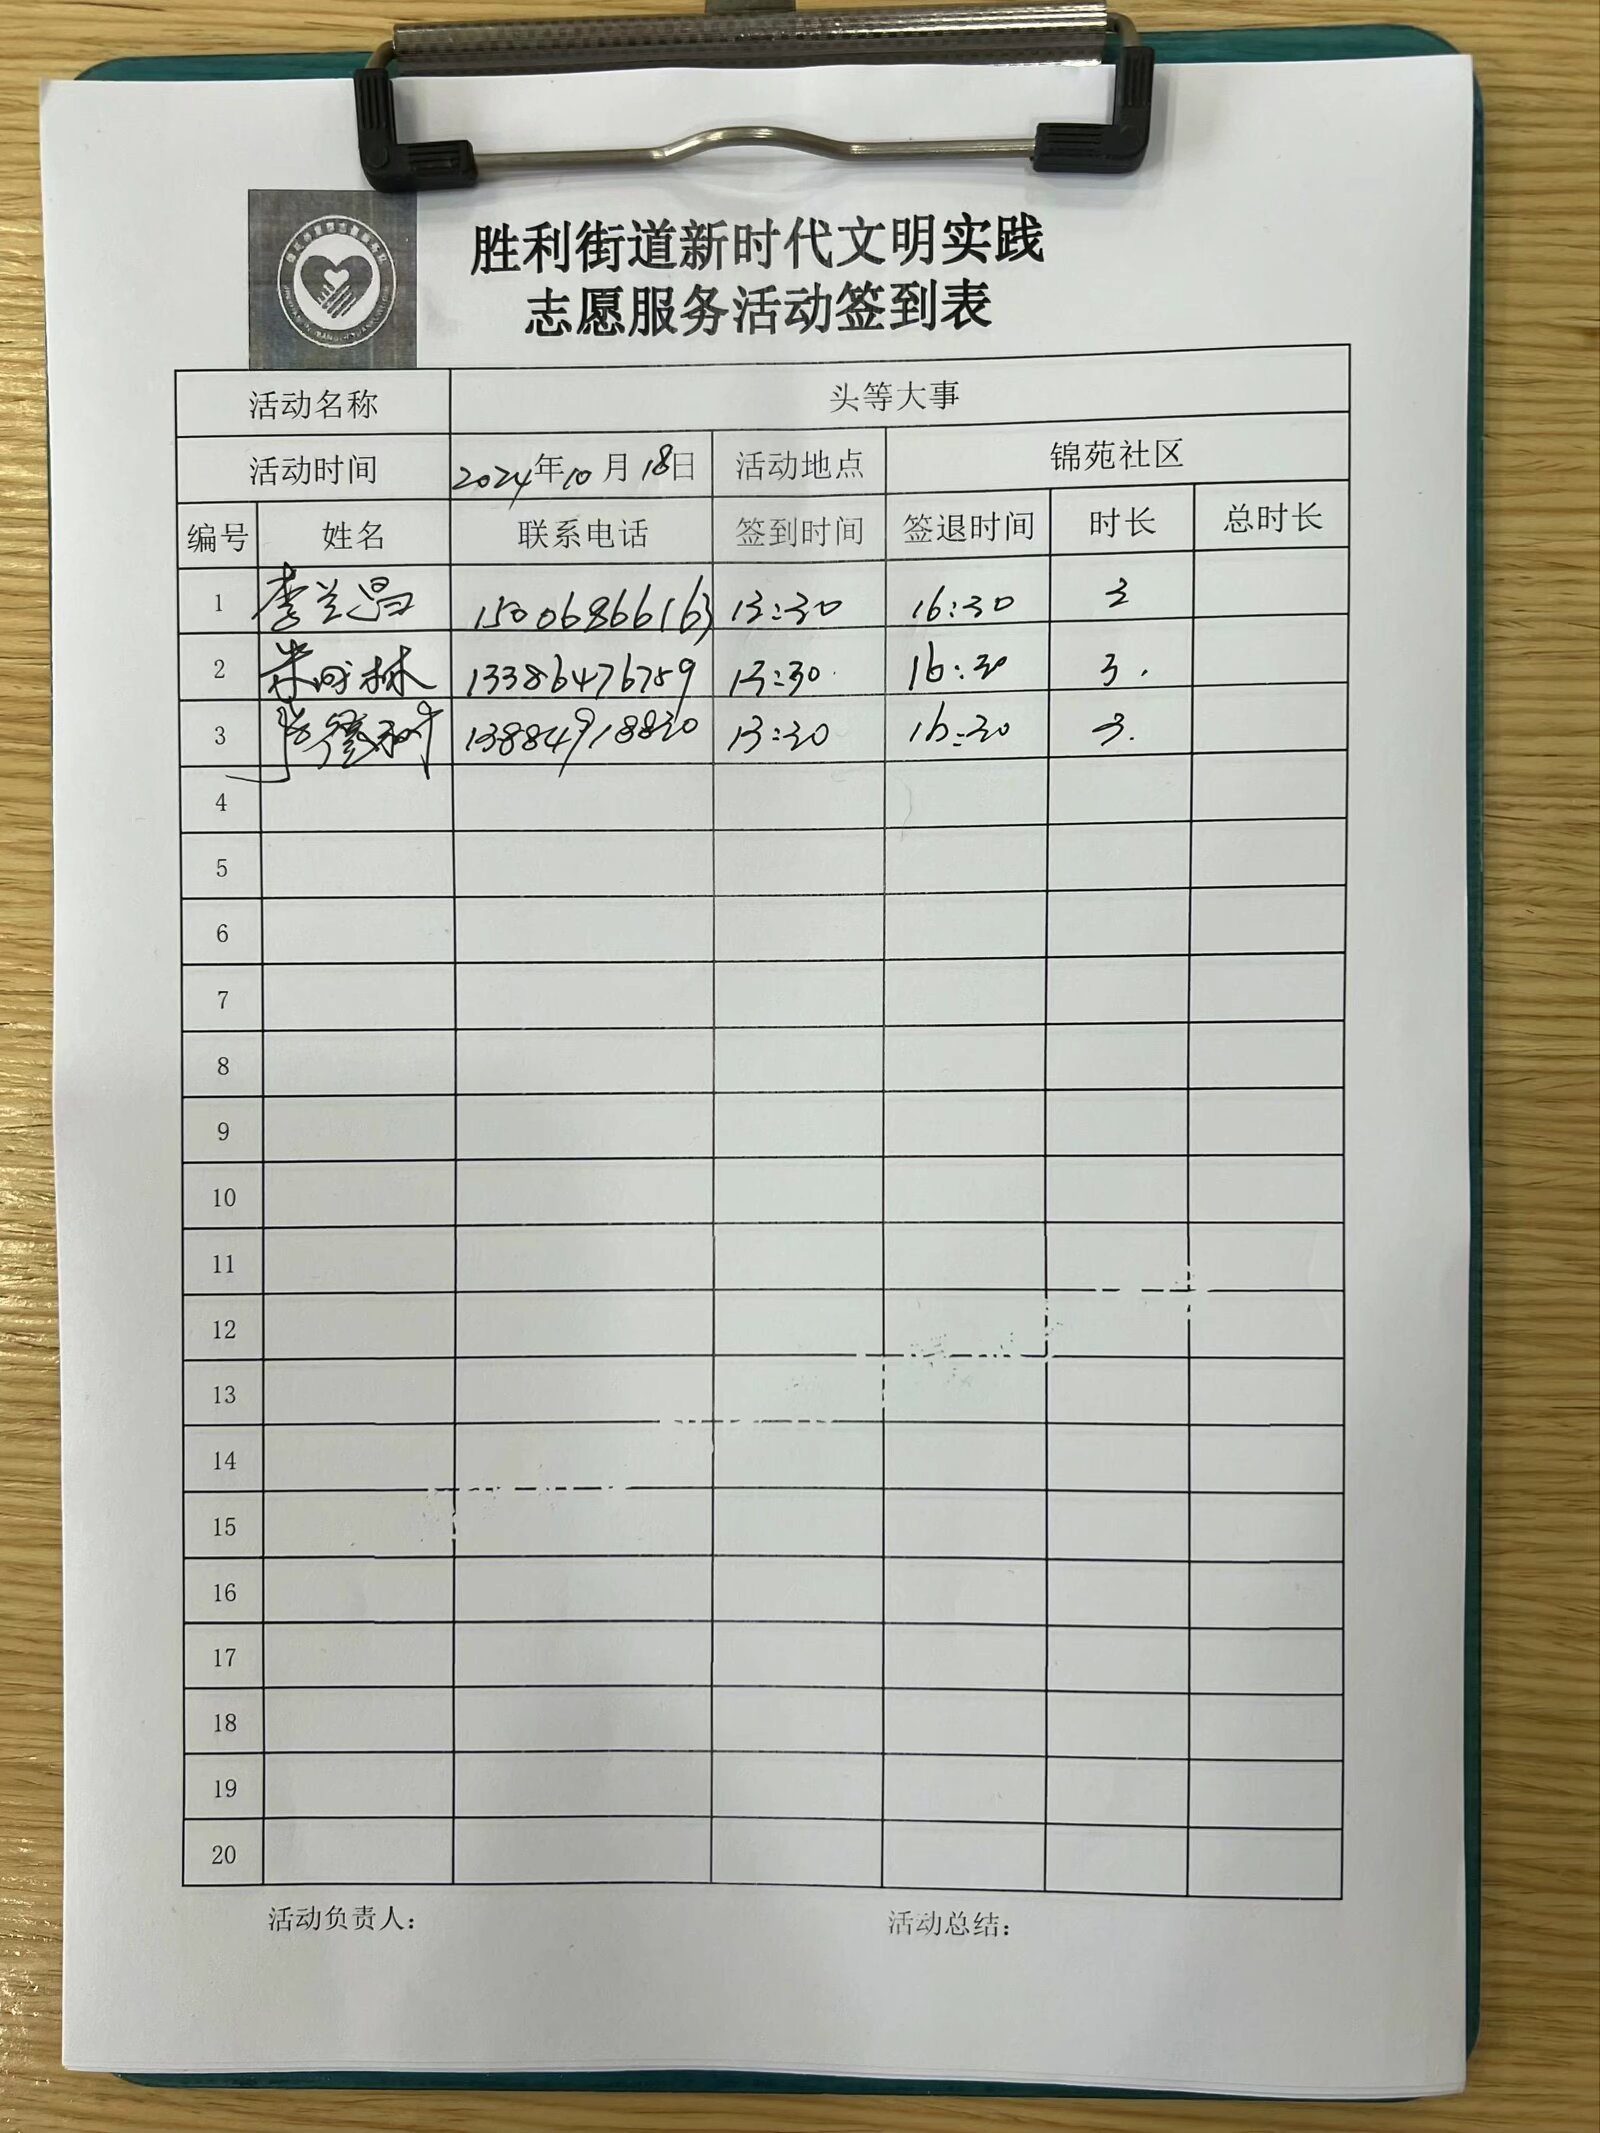 胜利街道新时代文明实践
志愿服务活动签到表
活动名称 头等大事
活动时间 2024年10月18日 活动地点 锦苑社区
编号 姓名 联系电话 签到时间 签退时间 时长 总时长
1 李兰昌 15006866163 13:30 16:30 3
2 林 13386476759 13:30 16:30 3.
3 13884918830 13:30 16:30 3.
4
5
6
7
8
9
10
11
12
13
14
15
16
17
18
19
20
活动负责人: 活动总结: